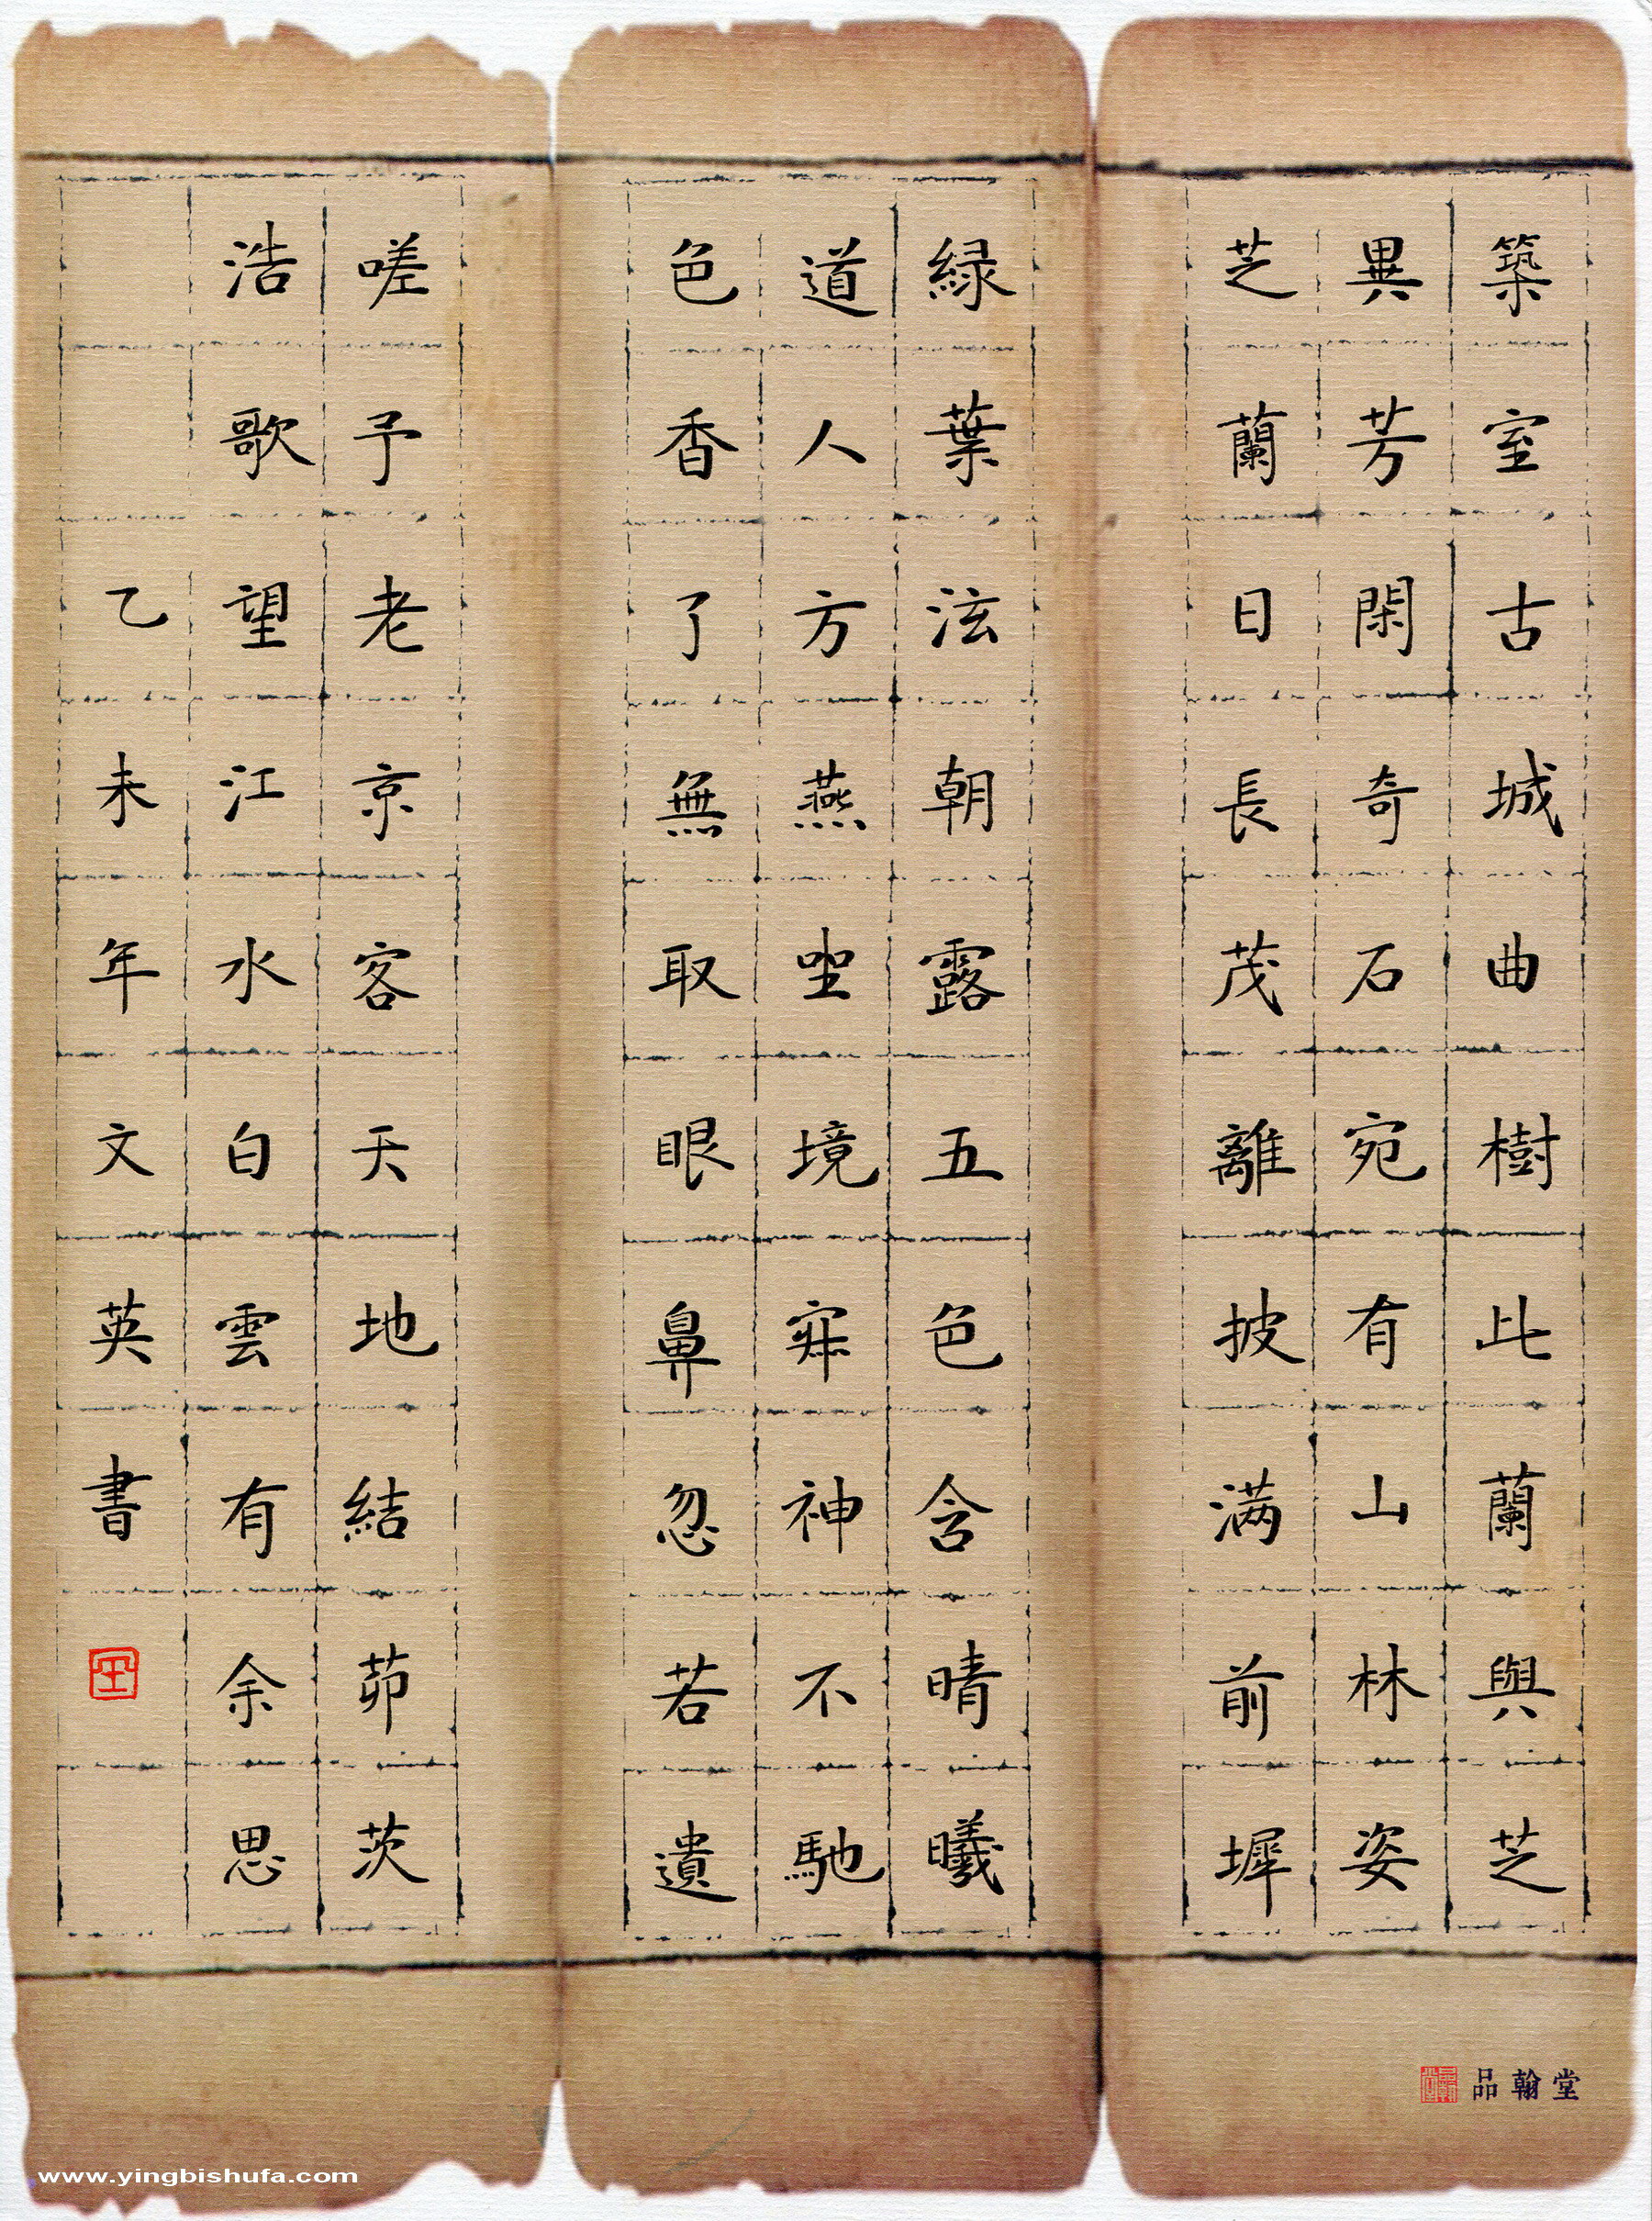 築室古城曲樹此蘭與芝
異芳閑奇石宛有山林姿
芝蘭日長茂離披满前墀
緑葉泫朝露五色含晴曦
道人方燕坐境寂神不馳
色香了無取眼鼻忽若遺
嗟予老京客天地結茆茨
浩歌望江水白雲有余思
乙未年文英書
品翰堂
www.yingbishufa.com